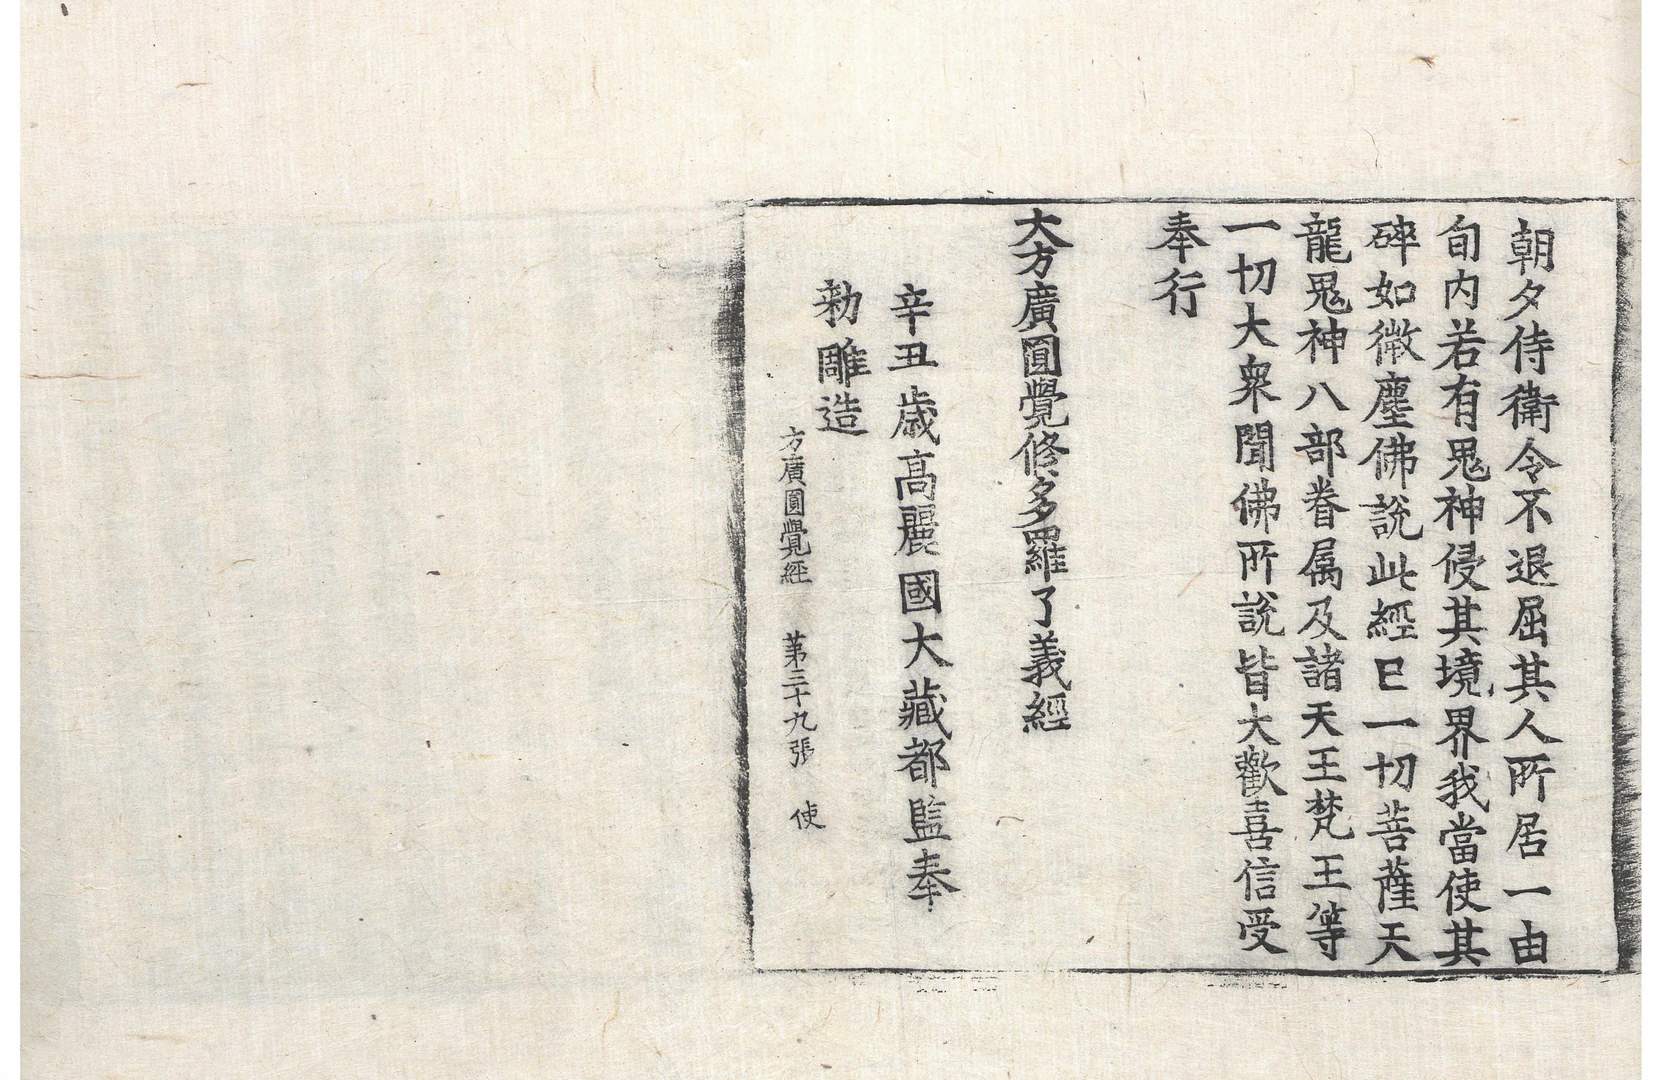 朝夕侍衛令不退屈其人所居一由
旬内若有鬼神侵其境界我當使其
碎如微塵佛說此經已一切菩薩天
龍鬼神八部眷属及諸天王梵王等
一切大衆聞佛所說皆大歡喜信受
奉行
大方廣圓覺修多羅了義經
辛丑歲高麗國大藏都監奉
勅雕造
方廣圓覺經 第三十九張 使